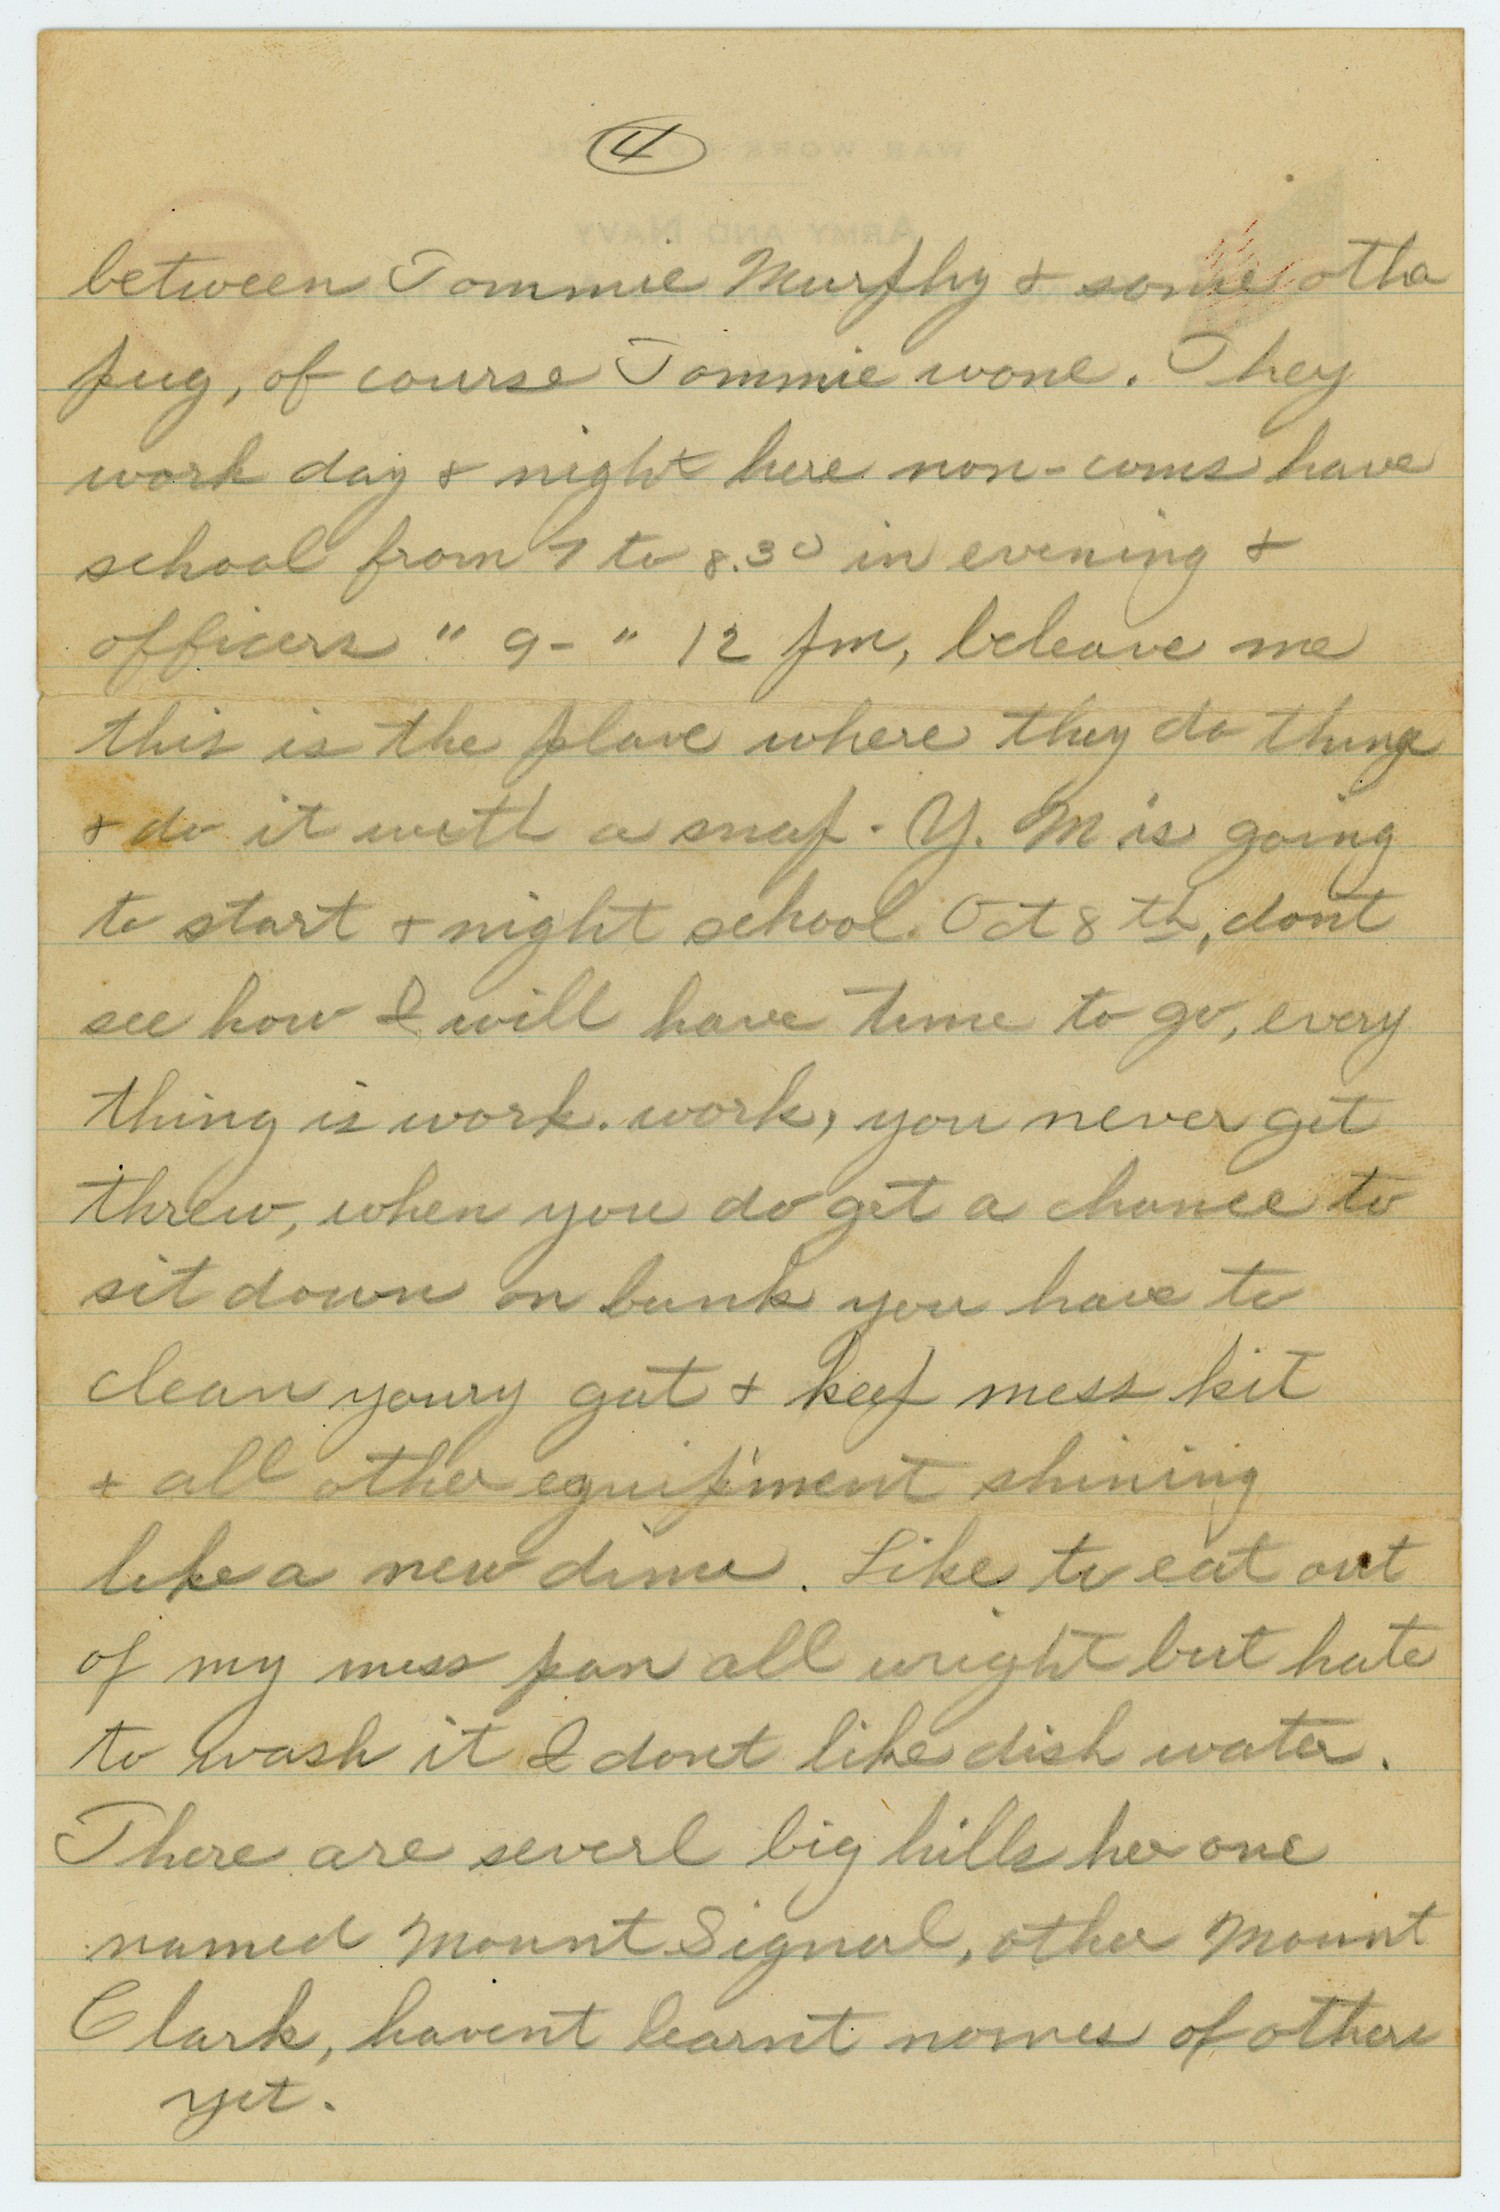 4
between Tommie Murphy & some otha
pug, of course Tommie wone. They
work day & night here non-coms have
school from 7 to 8.30 in evening &
officers " 9- " 12 pm, beleave me
this is the place where they do things
& do it with a snap. Y. M is going
to start & night school. Oct 8th, dont
see how I will have time to go, every
thing is work. work, you never get
threw, when you do get a chance to
sit down on bunk you have to
clean youry gat & keep mess kit
& all other equip'ment shining
like a new dime. Like to eat out
of my mess pan all wright but hate
to wash it I dont like dish water.
There are severl big hills her one
named Mount Signal, other Mount
Clark, havent learnt nomes of others
yet.